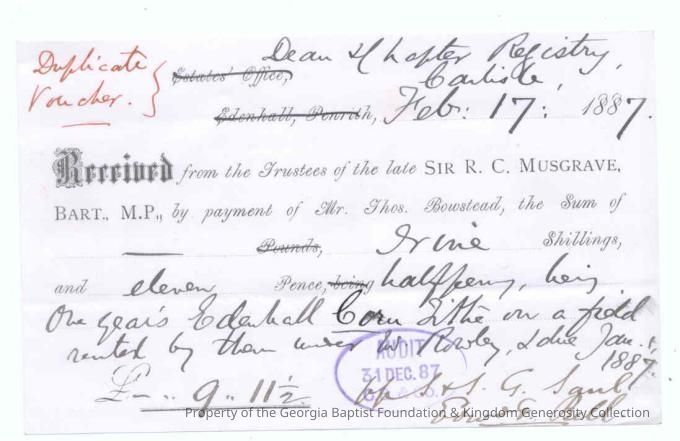 Duplicate
Voucher.
Dean & Chapter Registry,
Estates' Office,
Carlisle,
Edenhall, Penrith, Feb: 17: 1887.
Received from the Trustees of the late SIR R. C. MUSGRAVE,
BART., M.P., by payment of Mr. Thos. Bowstead, the Sum of
Pounds, Nine Shillings,
and eleven Pence, being halfpenny, being
One year's Edenhall Corn Tithe on a field
rented by them under Mr Rowley, & due Jan. 1,
1887.
AUDIT
31 DEC. 87
£ - .. 9 .. 11½ pp S. & S. G. Saul
Property of the Georgia Baptist Foundation & Kingdom Generosity Collection